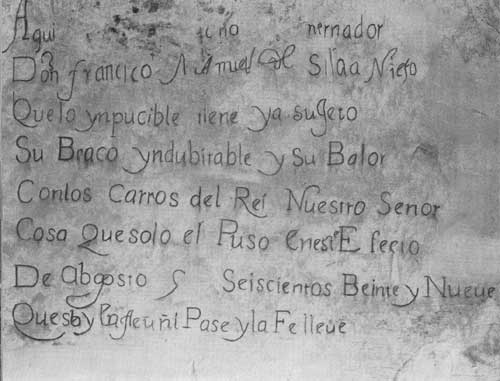 Aqui nernador
Don francico Silaa Nieto
Quelo ynpucible tiene ya sugeto
Su Braco yndubitable y su Balor
Conlos Carros del Rei Nuestro Senor
Cosa Quesolo el Puso Enesté Efecto
De Abgosto Seiscientos Beinte y Nueue
Pase yla Felleue